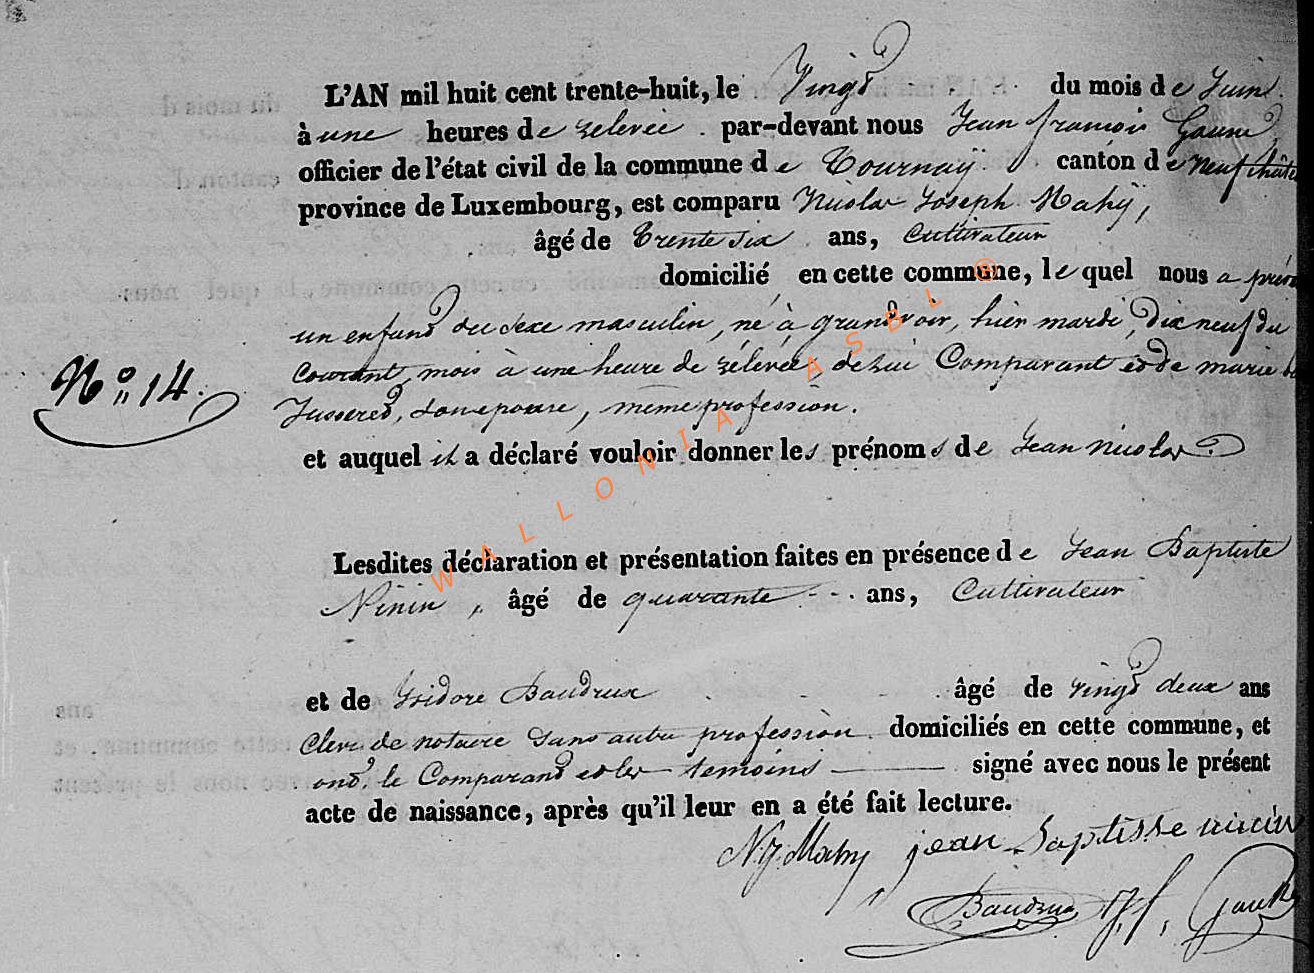 L'AN mil huit cent trente-huit, le Vingt du mois de Juin
à une heures de relevée par-devant nous Jean françois
officier de l'état civil de la commune de Tournaÿ canton de Neufchâte
province de Luxembourg, est comparu Nicolas Joseph Mahÿ,
âgé de Trente Six ans, Cultivateur
domicilié en cette commune, le quel nous a prése
un enfant du sexe masculin, né à grandvoir, hier mardi, dix neuf du
Courant mois à une heure de rélévée, de lui Comparant et de marie
Jusseret, son epouse, même profession.
N° 14.
et auquel il a déclaré vouloir donner les prénoms de Jean Nicolas
Lesdites déclaration et présentation faites en présence de Jean Baptiste
Ninin, âgé de quarante ans, Cultivateur
et de Isidore Baudrux âgé de vingt deux ans
Clerc de notaire Sans autre profession domiciliés en cette commune, et
ont, le Comparant et les temoins signé avec nous le présent
acte de naissance, après qu'il leur en a été fait lecture.
N.J. Mahy jean Baptisse ninin
Baudrux J.f.
WALLONIA ASBL ©